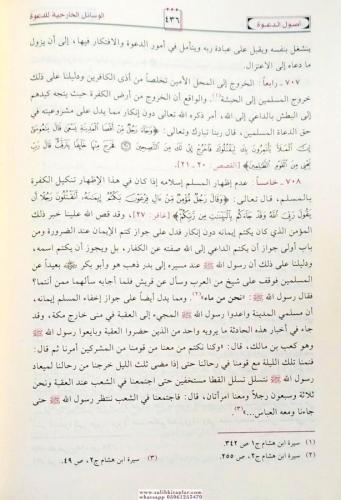 أصول الدعوة
٤٣٦
الوسائل الخارجية للدعوة
ينشغل بنفسه ويقبل على عبادة ربه ويتأمل في أمور الدعوة والافتكار فيها، إلى أن يزول
ما دعاه إلى الاعتزال.
٧٠٧ ـ رابعاً: الخروج إلى المحل الأمين تخلصاً من أذى الكافرين ودليلنا على ذلك
خروج المسلمين إلى الحبشة(١)، والواقع أن الخروج من أرض الكفرة حيث يتجه كيدهم
إلى البطش بالداعي إلى الله، أمر ذكره الله تعالى دون إنكار مما يدل على مشروعيته في
حق الدعاة المسلمين، قال ربنا تبارك وتعالى: ﴿وَجَاءَ رَجُلٌ مِّنْ أَقْصَا الْمَدِينَةِ يَسْعَى قَالَ يَا مُوسَى
إِنَّ الْمَلَأَ يَأْتَمِرُونَ بِكَ لِيَقْتُلُوكَ فَاخْرُجْ إِنِّي لَكَ مِنَ النَّاصِحِينَ ۞ فَخَرَجَ مِنْهَا خَائِفًا يَتَرَقَّبُ قَالَ رَبِّ
نَجِّنِي مِنَ الْقَوْمِ الظَّالِمِينَ﴾ [القصص: ٢٠ ـ ٢١].
٧٠٨ ـ خامساً: عدم إظهار المسلم إسلامه إذا كان في هذا الإظهار تنكيل الكفرة
بالمسلم، قال تعالى: ﴿وَقَالَ رَجُلٌ مُّؤْمِنٌ مِّنْ آلِ فِرْعَوْنَ يَكْتُمُ إِيمَانَهُ أَتَقْتُلُونَ رَجُلًا أَن
يَقُولَ رَبِّيَ اللَّهُ وَقَدْ جَاءَكُم بِالْبَيِّنَاتِ مِن رَّبِّكُمْ﴾ [غافر: ٢٧]. وقد قص الله علينا خبر هذا
المؤمن الذي كان يكتم إيمانه دون إنكار فدل على جواز كتم الإيمان عند الضرورة ومن
باب أولى جواز أن يكتم الداعي إلى الله صفته عن الكفار، بل ويجوز أن يكتم اسمه،
ودليلنا على ذلك أن رسول الله ﷺ عند مسيره إلى بدر ذهب هو وأبو بكر بعيداً عن
المسلمين فوقف على شيخ من العرب وسأل عن قريش فلما أجابه سألهما ممن أنتما؟
فقال رسول الله ﷺ: «نحن من ماء»(٢). ومما يدل أيضاً على جواز إخفاء المسلم إيمانه،
أن مسلمي المدينة واعدوا رسول الله ﷺ المجيء إلى العقبة في منى خارج مكة، وقد
جاء في أخبار هذه الحادثة ما يرويه واحد من الذين حضروا العقبة وبايعوا رسول الله ﷺ
وهو كعب بن مالك، قال: «وكنا نكتم من معنا من قومنا من المشركين أمرنا ثم قال:
فنمنا تلك الليلة مع قومنا في رحالنا حتى إذا مضى ثلث الليل خرجنا من رحالنا لميعاد
رسول الله ﷺ نتسلل تسلل القطا مستخفين حتى اجتمعنا في الشعب عند العقبة ونحن
ثلاثة وسبعون رجلاً ومعنا امرأتان، قال: فاجتمعنا في الشعب ننتظر رسول الله ﷺ حتى
جاءنا ومعه العباس...»(٣).
(١) سيرة ابن هشام ج١ ص ٣٤٢.
(٢) سيرة ابن هشام ج٢، ص ٢٥٥. (٣) سيرة ابن هشام ج٢، ص ٤٩.
www.salihkitaplar.com
whatsapp 05061255470